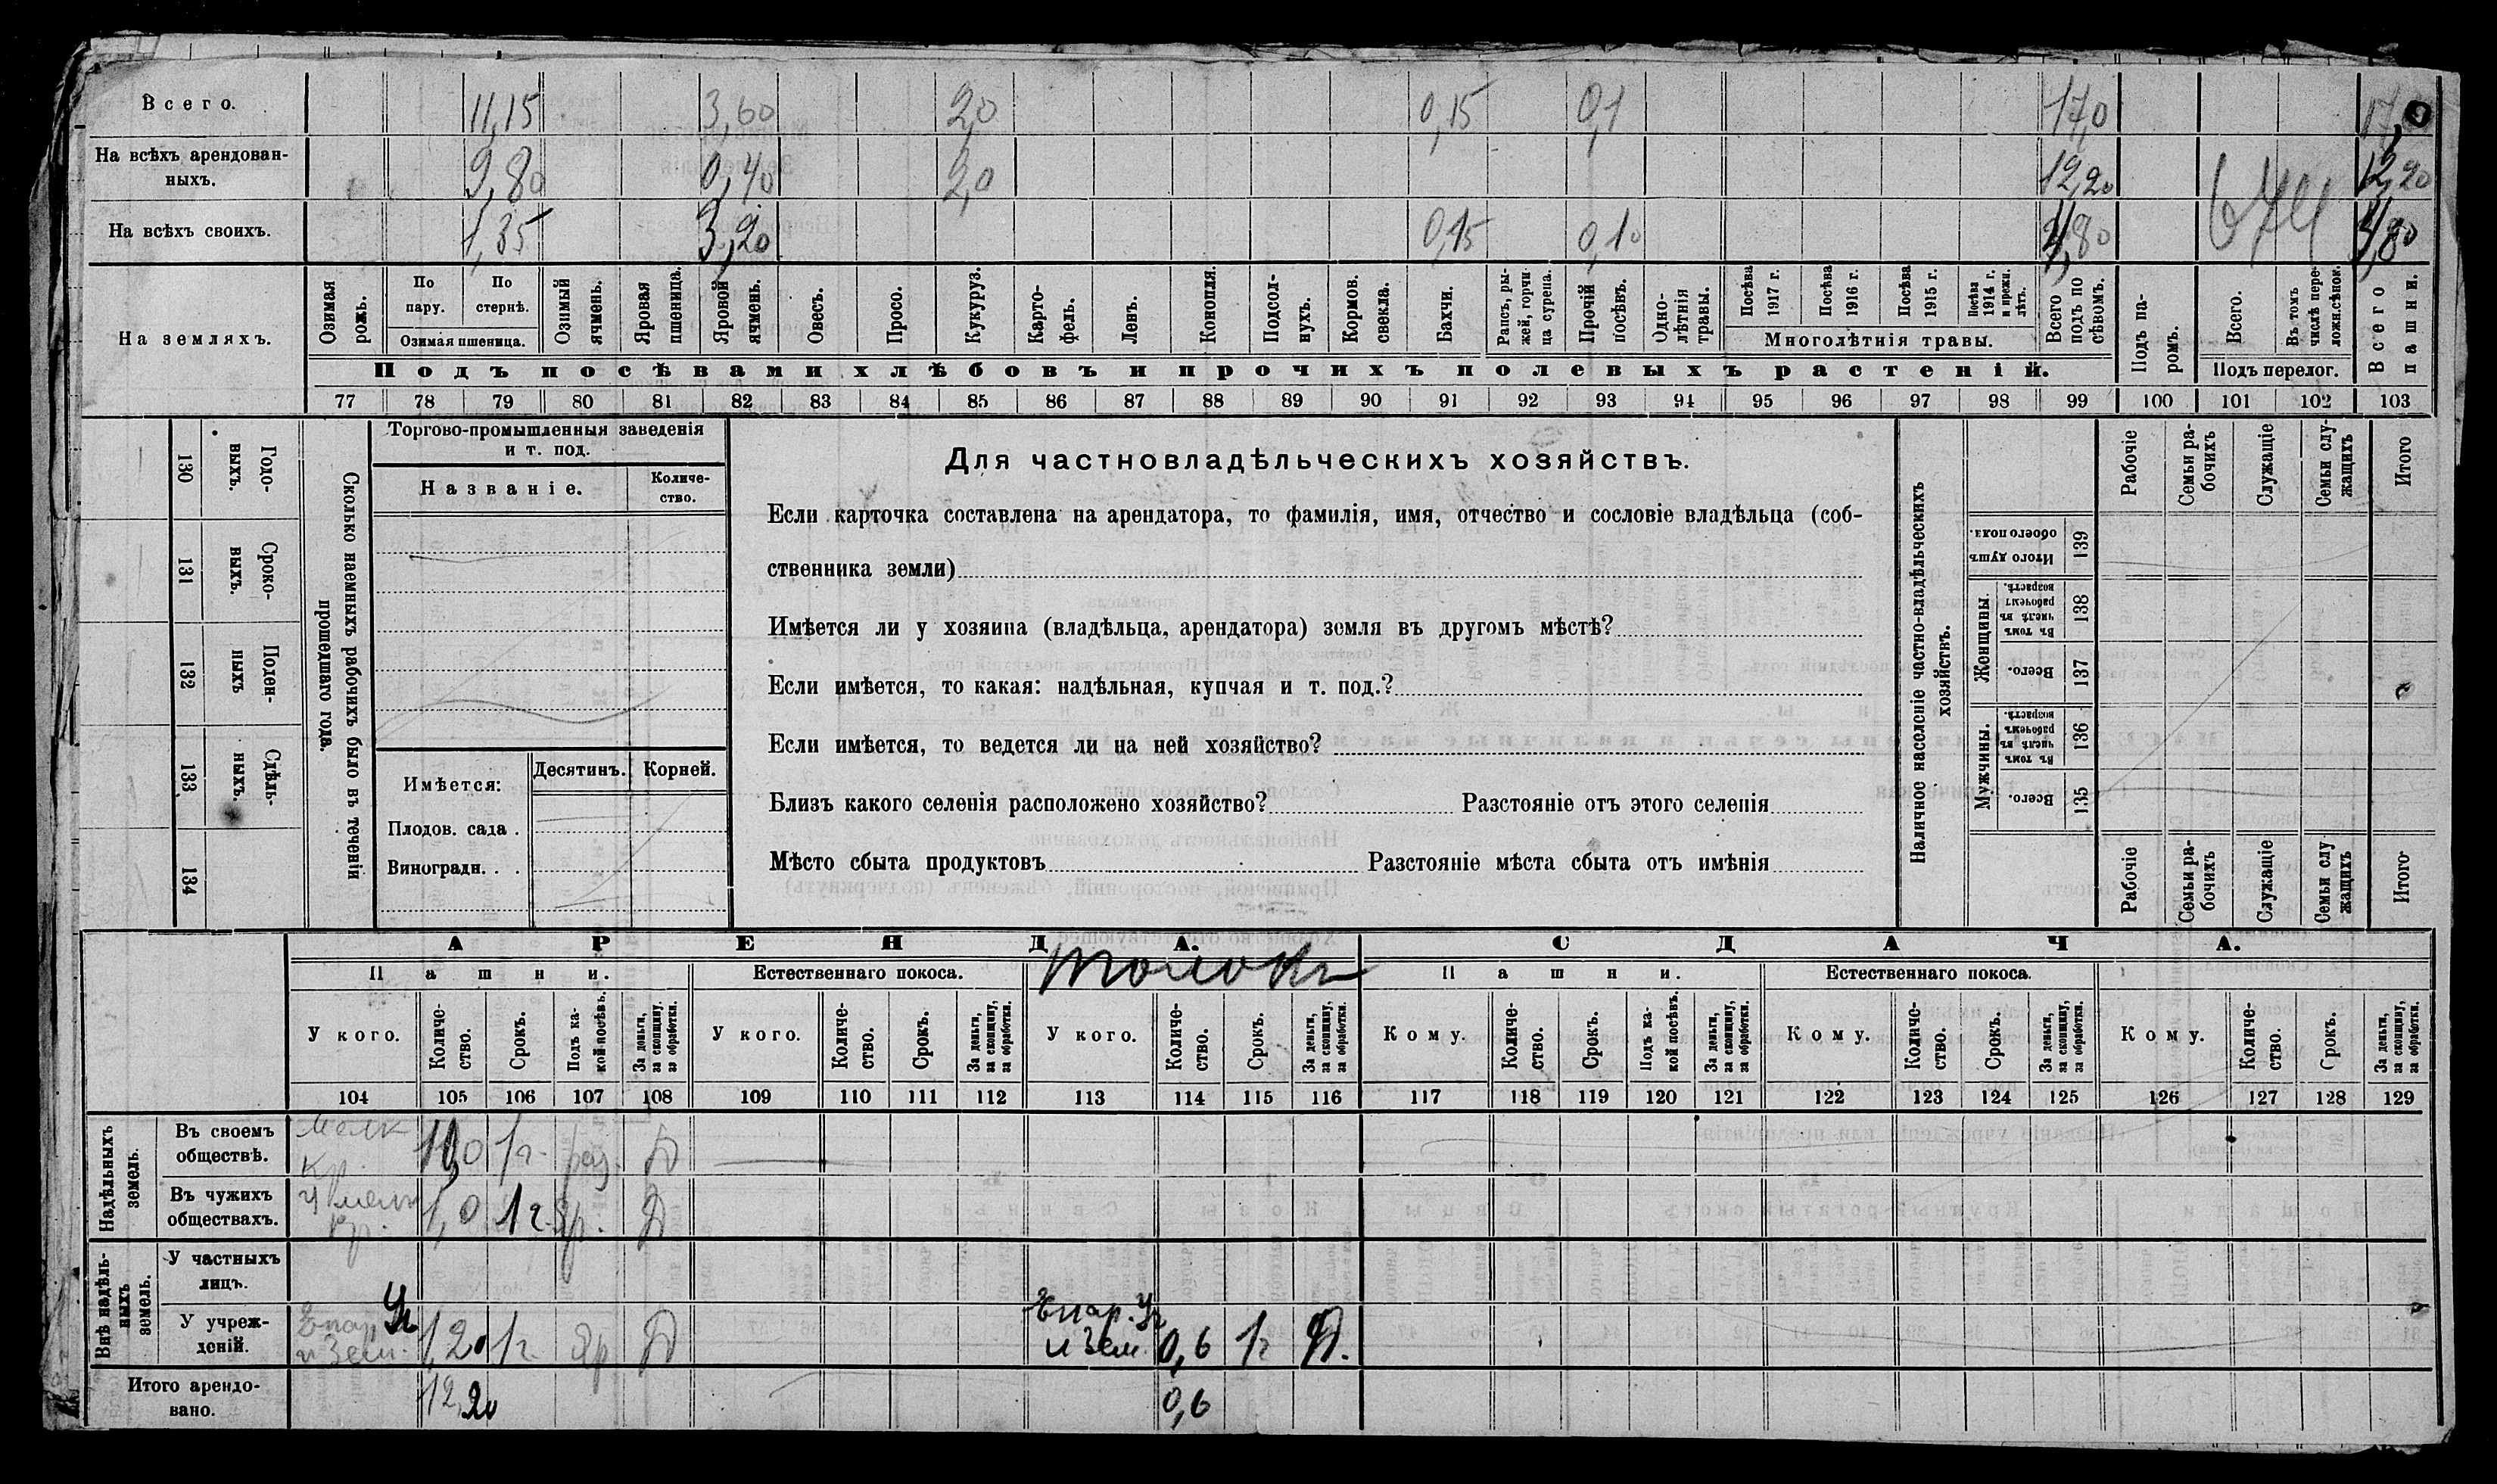 Всего. 11,15 3,60 2,0 0,15 0,1 17,0 17,0
На всѣхъ арендован-
ныхъ. 9,80 0,40 2,0 12,20 12,20
На всѣхъ своихъ. 1,35 3,20 0,15 0,10 4,80 4,80
На земляхъ.
Озимая рожь.
По пару.
По стернѣ.
Озимая пшеница.
Озимый ячмень.
Яровая пшеница.
Яровой ячмень.
Овесъ.
Просо.
Кукуруз.
Карто-
фель.
Ленъ.
Конопля.
Подсол-
нухъ.
Кормов. свекла.
Бахчи.
Рапсъ, ры-
жей, горчи
ца сурепа.
Прочій посѣвъ.
Одно-
лѣтнія
травы.
Посѣва 1917 г.
Посѣва 1916 г.
Посѣва 1915 г.
Посѣва 1914 г. и прежн. лѣтъ.
Многолѣтнія травы.
Всего подъ по
сѣвомъ.
Подъ па-
ромъ.
Всего.
Въ томъ числѣ пере-
ложн.сѣнок.
Подъ перелог.
Всего пашни.
Подъ посѣвами хлѣбовъ и прочихъ полевыхъ растеній.
77 78 79 80 81 82 83 84 85 86 87 88 89 90 91 92 93 94 95 96 97 98 99 100 101 102 103
Сколько наемныхъ рабочихъ было въ теченіи
прошедшаго года.
Годо-
выхъ.
130
Сроко-
выхъ.
131
Поден-
ныхъ
132
Сдѣль-
ныхъ.
133
134
Торгово-промышленныя заведенія
и т. под.
Названіе.
Количе-
ство.
Имѣется:
Десятинъ.
Корней.
Плодов. сада .
Виноградн. . .
Для частновладѣльческихъ хозяйствъ.
Если карточка составлена на арендатора, то фамилія, имя, отчество и сословіе владѣльца (соб-
ственника земли)
Имѣется ли у хозяина (владѣльца, арендатора) земля въ другомъ мѣстѣ?
Если имѣется, то какая: надѣльная, купчая и т. под.?
Если имѣется, то ведется ли на ней хозяйство?
Близъ какого селенія расположено хозяйство? Разстояніе отъ этого селенія
Мѣсто сбыта продуктовъ Разстояніе мѣста сбыта отъ имѣнія
Наличное населеніе частно-владѣльческихъ
хозяйствъ.
Рабочіе
Семьи ра-
бочихъ
Служащіе
Семьи слу-
жащихъ
Итого
Итого душ обоего пола.
139
Женщины.
Въ томъ числѣ въ рабочемъ возрастѣ.
138
Всего.
137
Мужчины.
Въ томъ числѣ въ рабочемъ возрастѣ.
136
Всего.
135
Рабочіе
Семьи ра-
бочихъ
Служащіе
Семьи слу
жащихъ
Итого
АРЕНДА.
СДАЧА.
Пашни.
Естественнаго покоса.
Толоки
Пашни.
Естественнаго покоса.
У кого.
Количе-
ство.
Срокъ.
Подъ ка-
кой посѣвъ.
За деньги, за скопщину, за обработки.
У кого.
Количе-
ство.
Срокъ.
За деньги, за скопщину, за обработки.
У кого.
Количе-
ство.
Срокъ.
За деньги, за скопщину, за обработки.
Кому.
Количе-
ство.
Срокъ.
Подъ ка-
кой посѣвъ.
За деньги, за скопщину, за обработки.
Кому.
Количе-
ство.
Срокъ.
За деньги, за скопщину, за обработки.
Кому.
Количе-
ство.
Срокъ.
За деньги, за скопщину, за обработки.
104 105 106 107 108 109 110 111 112 113 114 115 116 117 118 119 120 121 122 123 124 125 126 127 128 129
Надѣльныхъ
земель.
Въ своемъ
обществѣ.
кр. 10,0 1г. раз. Д
Въ чужихъ
обществахъ.
кр. 1,0 1г. яр. Д
Внѣ надѣль-
ныхъ
земель.
У частныхъ
лицъ.
У учреж-
деній.
Епар. Уч
и Зем. 1,20 1г. яр Д
Епар. Уч
и Зем. 0,6 1г Д.
Итого арендо-
вано. 12,20 0,6